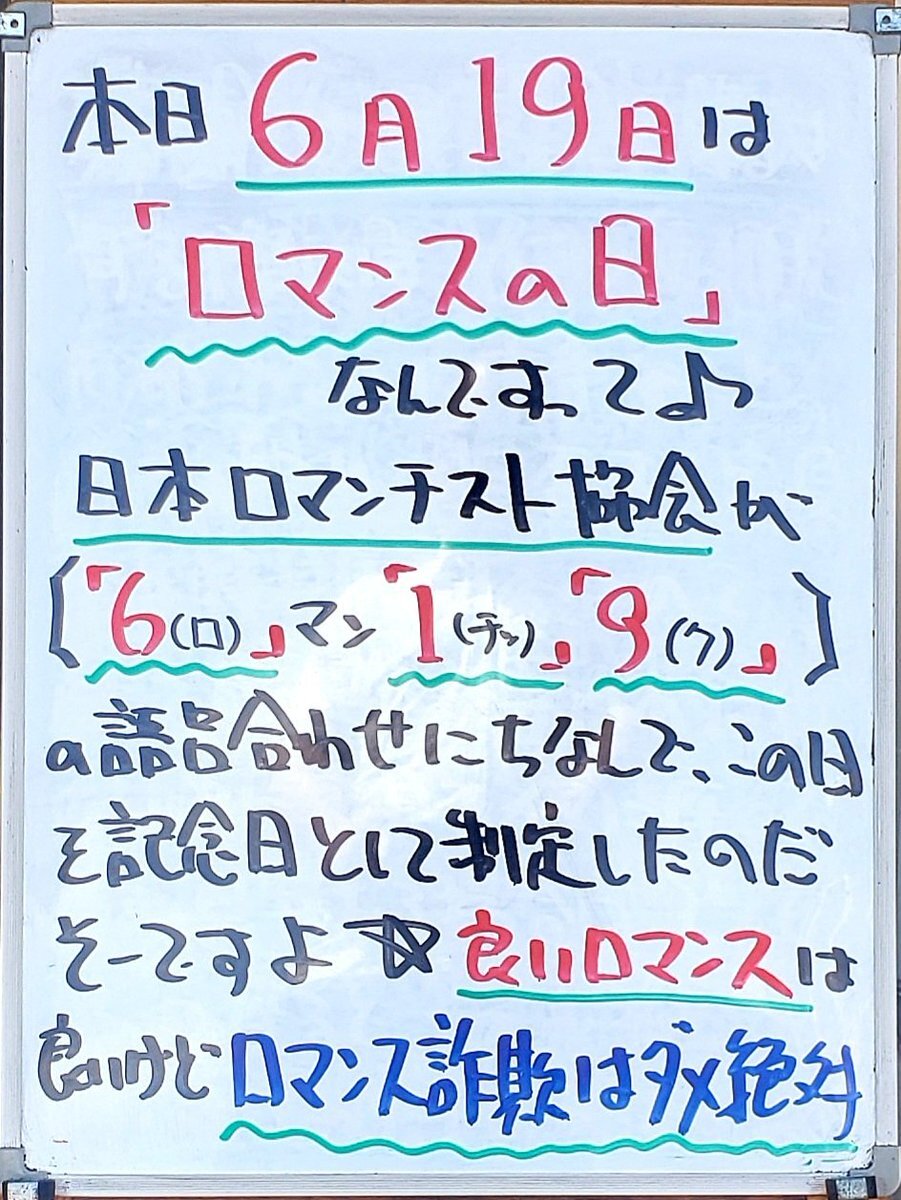 本日6月19日は
「ロマンスの日」
なんですって♪
日本ロマンチスト協会が
(「6(ロ)」マン「1(チッ)」「9(ク)」)
の語呂合わせにちなんで、この日
を記念日として制定したのだ
そーですよ☆良いロマンスは
良いけどロマンス詐欺はダメ絶対